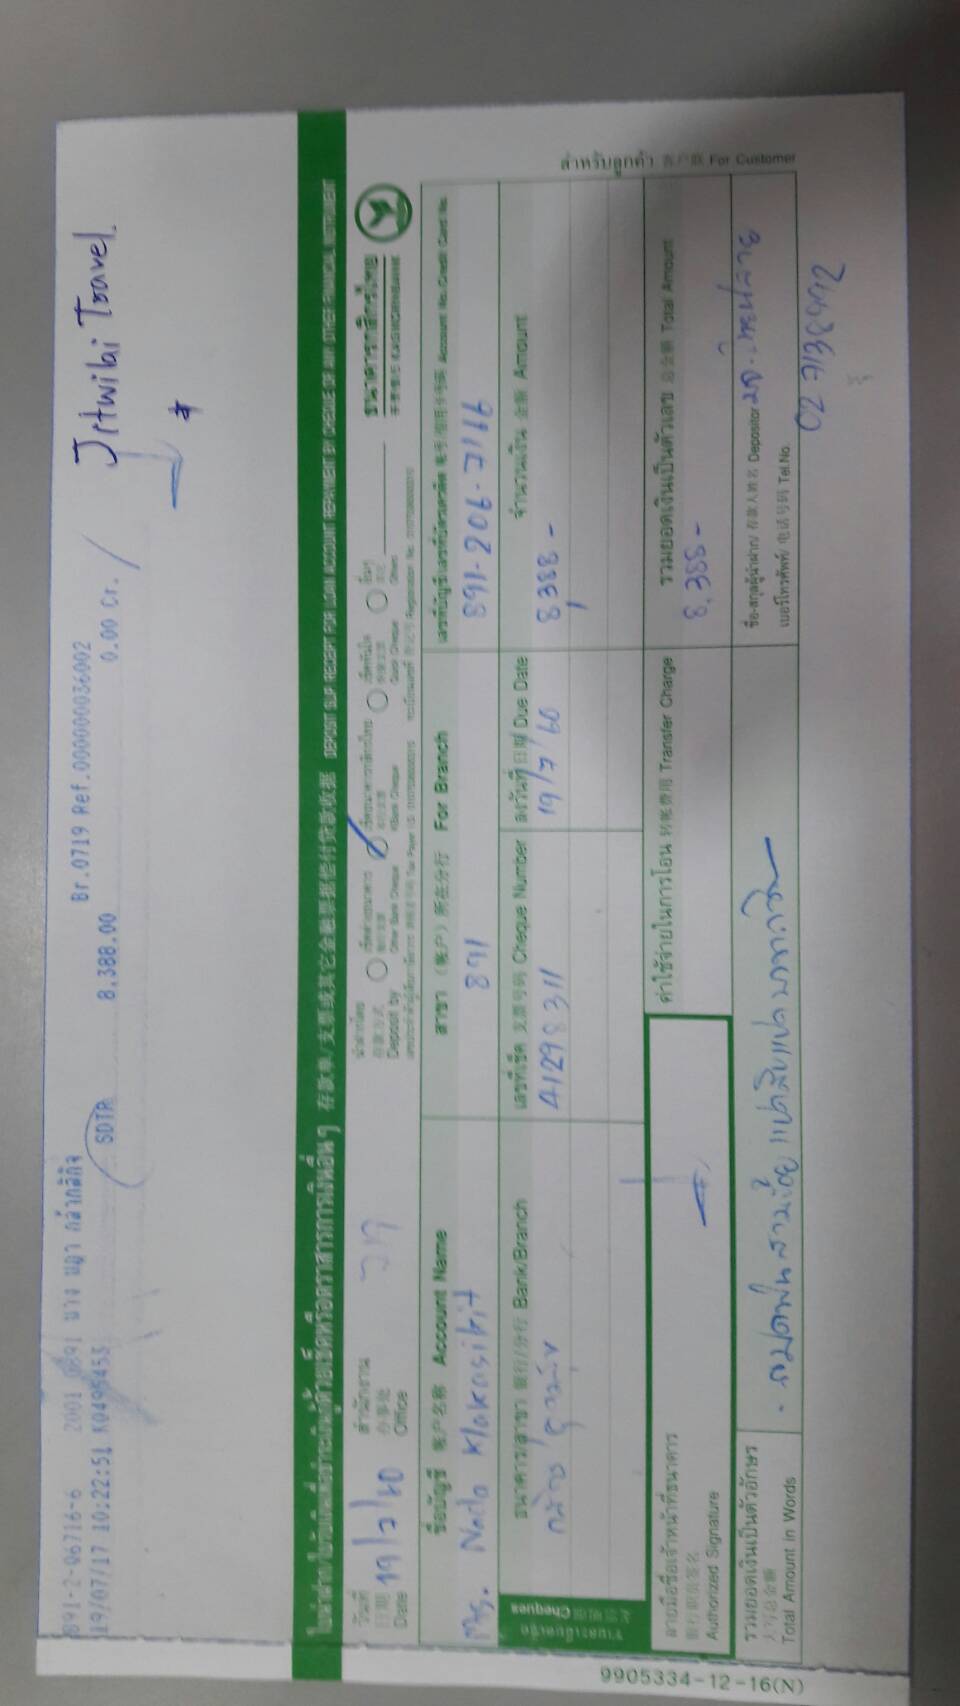 891-2-06716-6 2001 0891 นาง นฎา กล้ากสิกิจ Br.0719 Ref.000000036002
19/07/17 10:22:51 K0495453 SDTR 8,388.00 0.00 Cr.
Jitwilai Travel.
ใบนำฝาก/ใบรับเงินเพื่อชำระเงินกู้ด้วยเช็คหรือตราสารการเงินอื่นๆ 存款单/支票或其它金融票据偿付贷款收据 DEPOSIT SLIP RECEIPT FOR LOAN ACCOUNT REPAYMENT BY CHEQUE OF ANY OTHER FINANCIAL INSTRUMENT
วันที่ 日期 Date 19/7/60
สำนักงาน 办事处 Office
นำฝากโดย 存款方式 Deposit by
เช็คต่างธนาคาร Other Bank Cheque
เช็คธนาคารกสิกรไทย KBank Cheque
Quick Cheque
อื่นๆ 其它 Others
ธนาคารกสิกรไทย
开泰银行 KASIKORNBANK
ชื่อบัญชี 账户名称 Account Name สาขา (账户) 所在分行 For Branch เลขที่บัญชี/เลขที่บัตรเครดิต 账号/信用卡号码 Account No./Credit Card No.
Mrs. Nada Klakasikit 891 891-206-7166
Cheques
ธนาคาร/สาขา 银行/分行 Bank/Branch เลขที่เช็ค 支票号码 Cheque Number ลงวันที่ 日期 Due Date จำนวนเงิน 金额 Amount
41298311 19/7/60 8,388 -
ลายมือชื่อเจ้าหน้าที่ธนาคาร
银行职员签名
Authorized Signature
ค่าใช้จ่ายในการโอน 转账费用 Transfer Charge
รวมยอดเงินเป็นตัวเลข 总金额 Total Amount
8,388 -
รวมยอดเงินเป็นตัวอักษร
大写总金额
Total Amount in Words
แปดพันสามร้อยแปดสิบแปดบาทถ้วน
ชื่อ-สกุลผู้นำฝาก/ 存款人姓名 Depositor
เบอร์โทรศัพท์/ 电话号码 Tel.No.
02 7138992
9905334-12-16(N)
สำหรับลูกค้า 客户联 For Customer